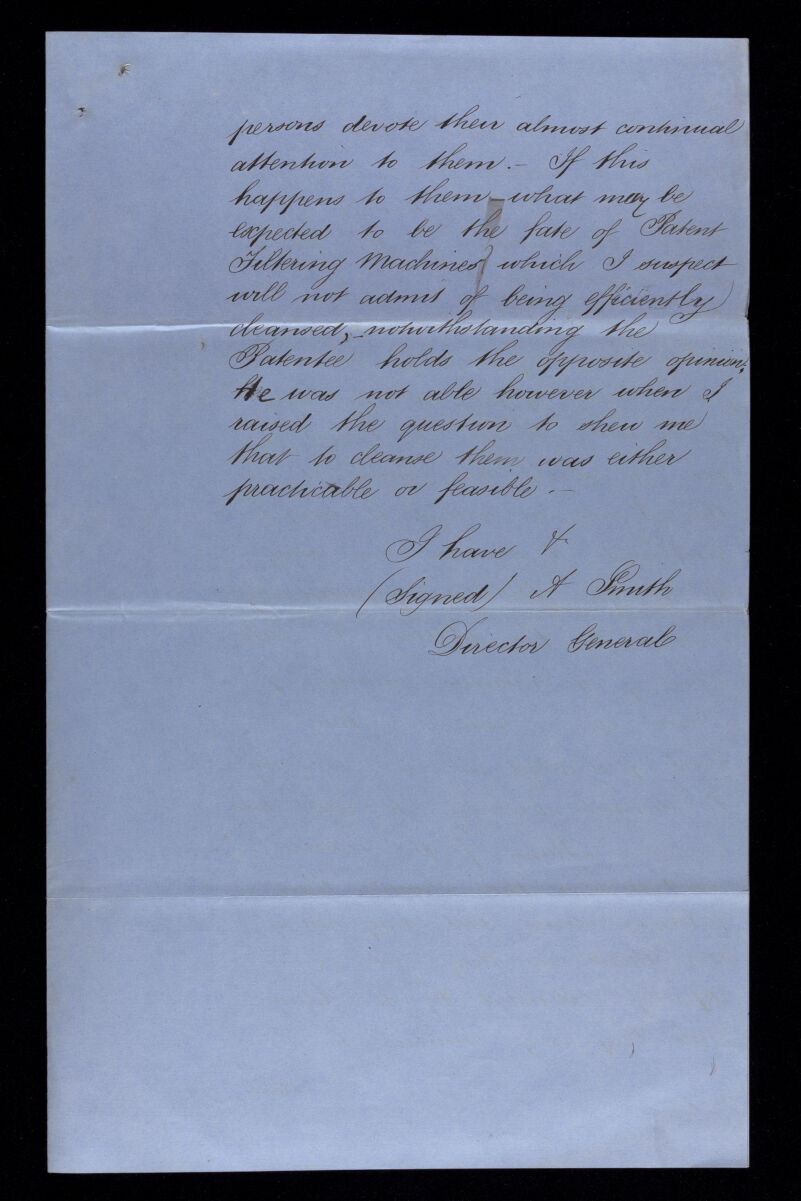 persons devote their almost continual
attention to them. - If this
happens to them - what may be
expected to be the fate of Patent
Filtering Machines, which I suspect
will not admit of being efficiently
cleansed, - notwithstanding the
Patentee holds the opposite opinion.
He was not able however when I
raised the question to shew me
that to cleanse them was either
practicable or feasible. -
I have &
(Signed) A Smith
Director General